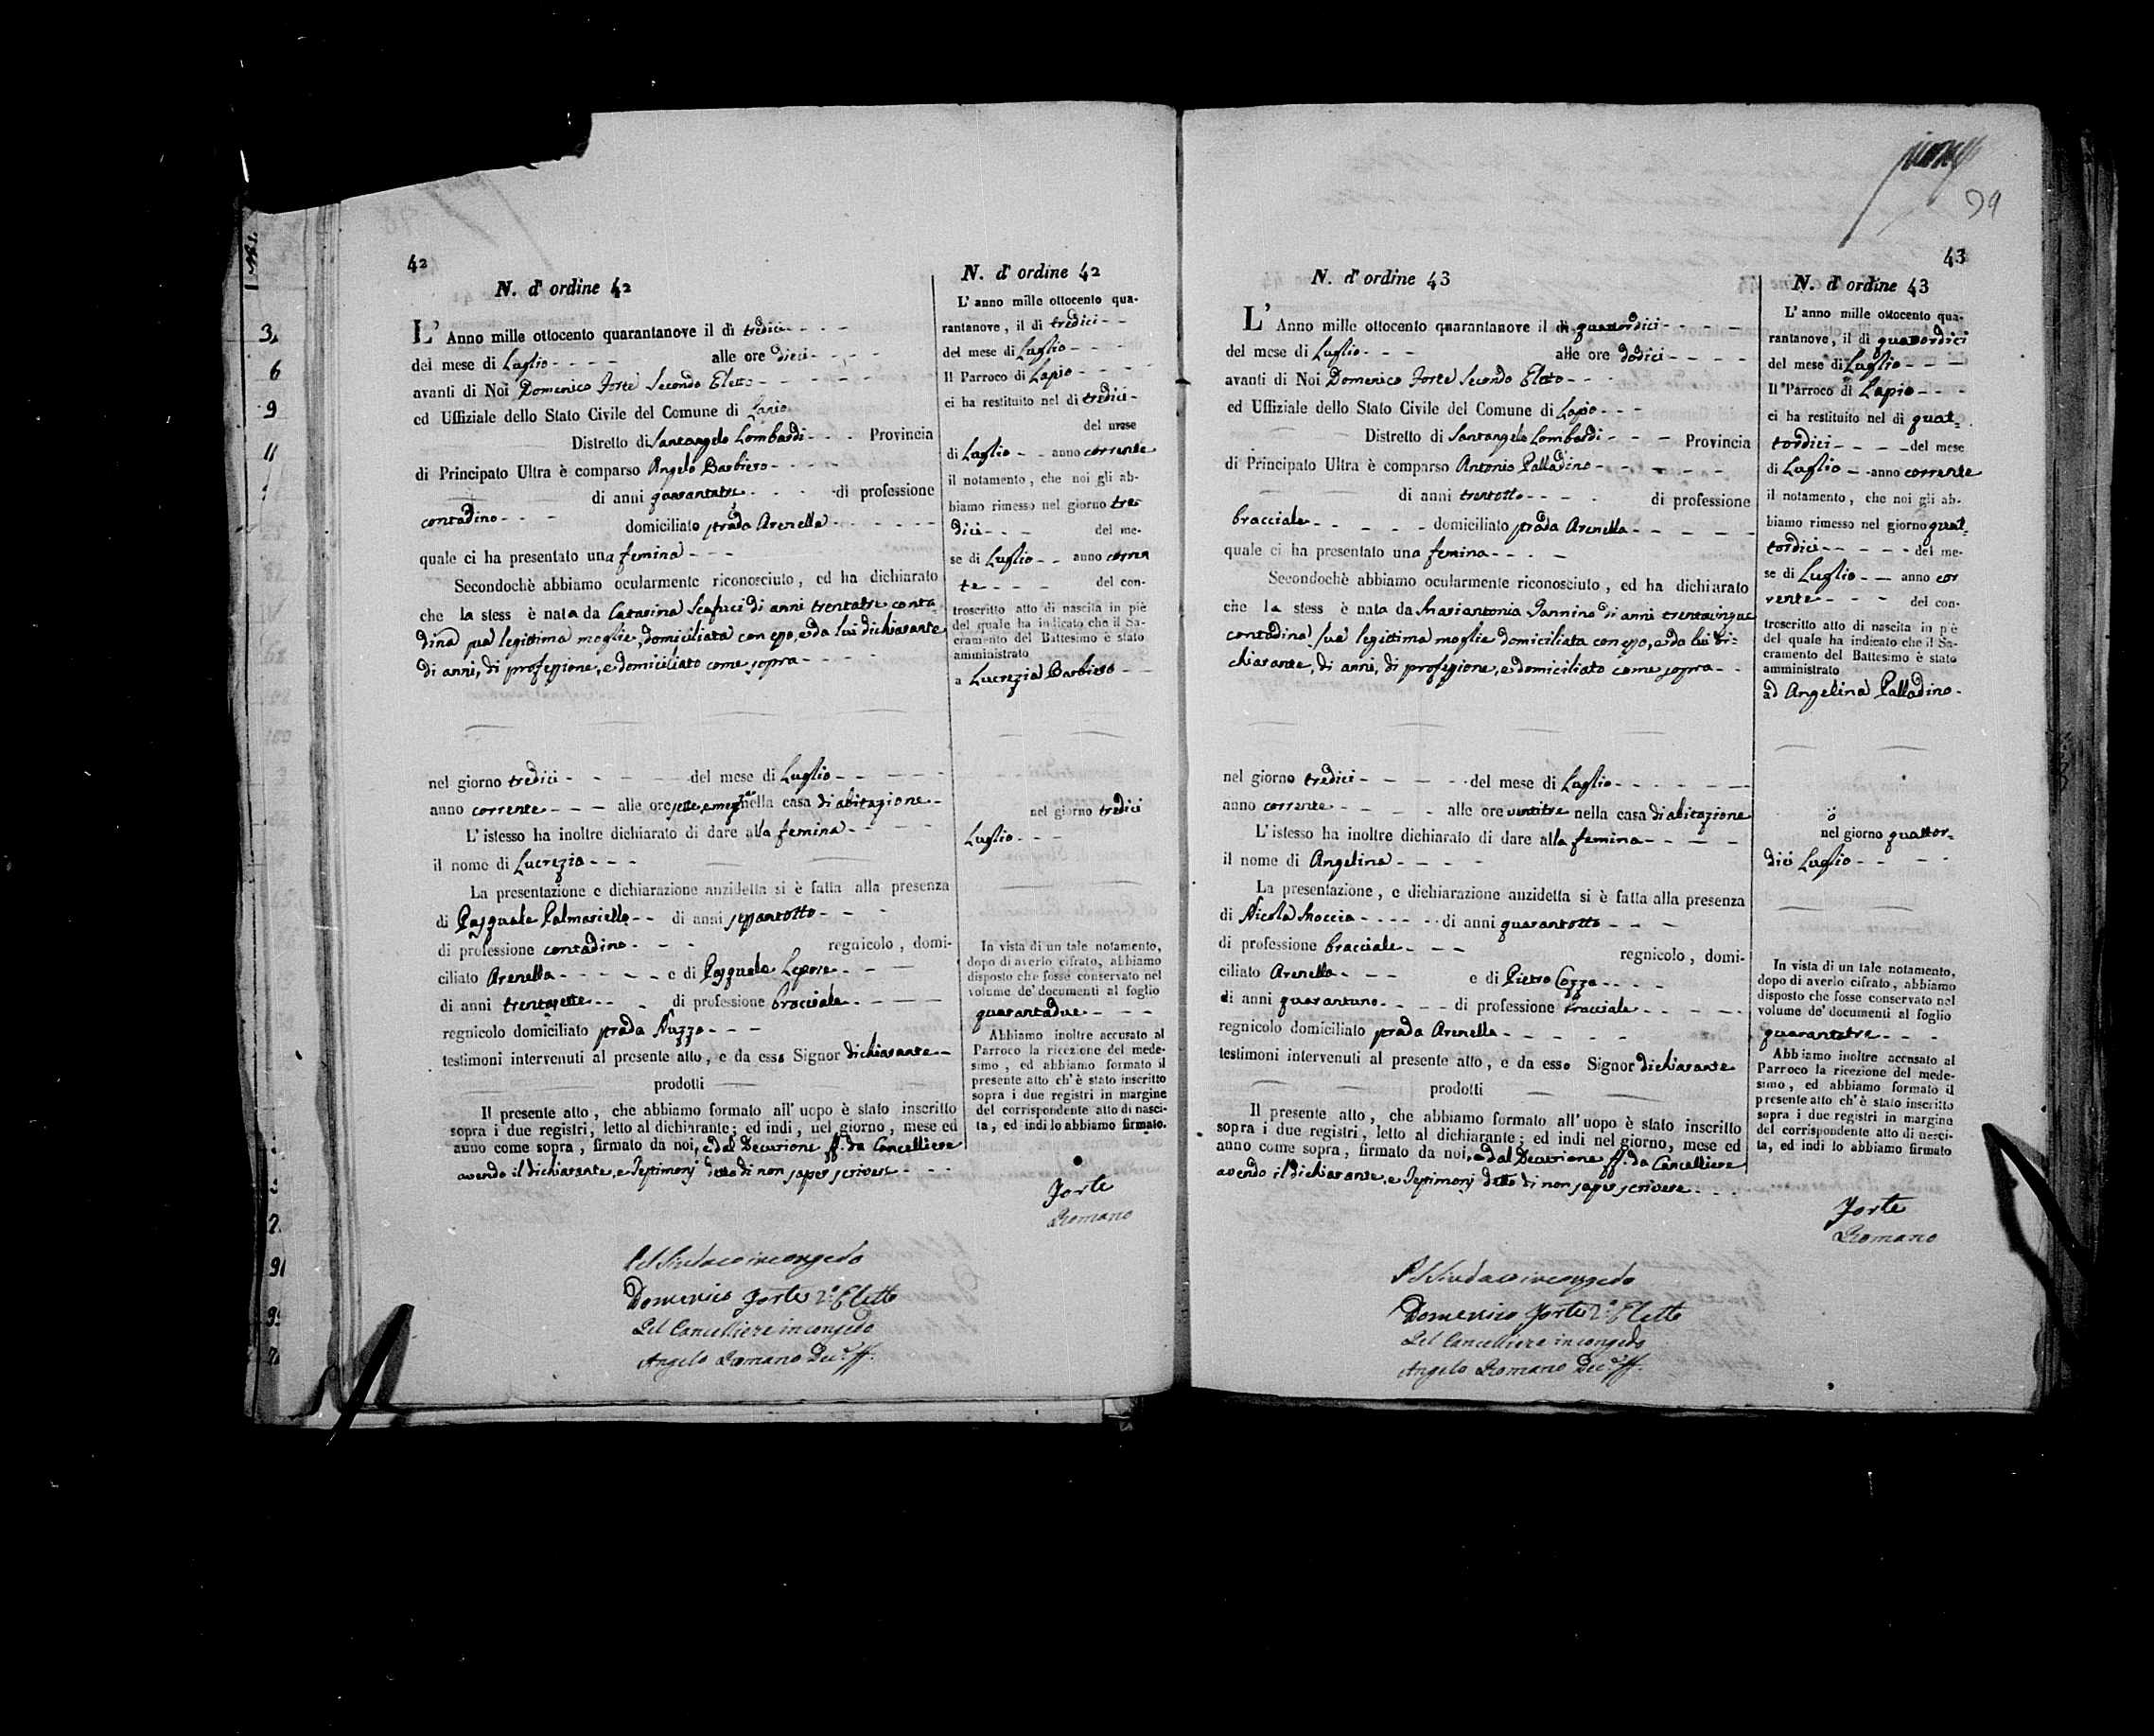 42
N. d' ordine 42
L' Anno mille ottocento quarantanove il dì tredici
del mese di Luglio alle ore dieci
avanti di Noi Domenico Forte Secondo Eletto
ed Uffiziale dello Stato Civile del Comune di Lapio
Distretto di Santangelo Lombardi Provincia
di Principato Ultra è comparso Angelo Barbiero
di anni quarantatre di professione
contadino domiciliato strada Arenella
quale ci ha presentato una femina
Secondochè abbiamo ocularmente riconosciuto, ed ha dichiarato
che la stess è nata da Catarina Scafuci di anni trentatre conta
dina sua legittima moglie, domiciliata con esso, e da lui dichiarante
di anni, di professione, e domiciliato come sopra
nel giorno tredici del mese di Luglio
anno corrente alle ore sette, e mezza nella casa di abitazione
L'istesso ha inoltre dichiarato di dare alla femina
il nome di Lucrezia
La presentazione e dichiarazione anzidetta si è fatta alla presenza
di Pasquale Palmariello di anni sessantotto
di professione contadino regnicolo, domi-
ciliato Arenella e di Pasquale Lepore
di anni trentasette di professione bracciale
regnicolo domiciliato strada Nuzzo
testimoni intervenuti al presente atto, e da esso Signor dichiarante
prodotti
Il presente atto, che abbiamo formato all' uopo è stato inscritto
sopra i due registri, letto al dichiarante; ed indi, nel giorno, mese ed
anno come sopra, firmato da noi, e dal Decurione ff. da Cancelliere
avendo il dichiarante, e Testimonj detto di non saper scrivere
Pel Sindaco in congedo
Domenico Forte 2º Eletto
Pel Cancelliere in congedo
Angelo Romano Dec.e ff.
N. d' ordine 42
L' anno mille ottocento qua-
rantanove, il dì tredici
del mese di Luglio
Il Parroco di Lapio
ci ha restituito nel dì tredici
del mese
di Luglio anno corrente
il notamento, che noi gli ab-
biamo rimesso nel giorno tre-
dici del me-
se di Luglio anno corren
te del con-
troscritto atto di nascita in piè
del quale ha indicato che il Sa-
cramento del Battesimo è stato
amministrato
a Lucrezia Barbiero
nel giorno tredici
Luglio
In vista di un tale notamento,
dopo di averlo cifrato, abbiamo
disposto che fosse conservato nel
volume de' documenti al foglio
quarantadue
Abbiamo inoltre accusato al
Parroco la ricezione del mede-
simo, ed abbiamo formato il
presente atto ch' è stato inscritto
sopra i due registri in margine
del corrispondente atto di nasci-
ta, ed indi lo abbiamo firmato.
Forte
Romano
43
N. d' ordine 43
L' Anno mille ottocento quarantanove il dì quattordici
del mese di Luglio alle ore dodici
avanti di Noi Domenico Forte Secondo Eletto
ed Uffiziale dello Stato Civile del Comune di Lapio
Distretto di Santangelo Lombardi Provincia
di Principato Ultra è comparso Antonio Palladino
di anni trentotto di professione
bracciale domiciliato strada Arenella
quale ci ha presentato una femina
Secondochè abbiamo ocularmente riconosciuto, ed ha dichiarato
che la stess è nata da Mariantonia Iannino di anni trentacinque
contadina sua legittima moglie domiciliata con esso, e da lui di-
chiarante, di anni, di professione, e domiciliato come sopra
nel giorno tredici del mese di Luglio
anno corrente alle ore ventitre nella casa di abitazione
L'istesso ha inoltre dichiarato di dare alla femina
il nome di Angelina
La presentazione, e dichiarazione anzidetta si è fatta alla presenza
di Nicola Moccia di anni quarantotto
di professione bracciale regnicolo, domi-
ciliato Arenella e di Pietro Cozzo
di anni quarantuno di professione bracciale
regnicolo domiciliato strada Arenella
testimoni intervenuti al presente atto, e da esso Signor dichiarante
prodotti
Il presente atto, che abbiamo formato all' uopo è stato inscritto
sopra i due registri, letto al dichiarante; ed indi nel giorno, mese ed
anno come sopra, firmato da noi, e dal Decurione ff. da Cancelliere
avendo il dichiarante, e Testimonj detto di non saper scrivere
Pel Sindaco in congedo
Domenico Forte 2º Eletto
Pel Cancelliere in congedo
Angelo Romano Dec.e ff.
N. d' ordine 43
L' anno mille ottocento qua-
rantanove, il dì quattordici
del mese di Luglio
Il Parroco di Lapio
ci ha restituito nel dì quat-
tordici del mese
di Luglio anno corrente
il notamento, che noi gli ab-
biamo rimesso nel giorno quat-
tordici del me-
se di Luglio anno cor
rente del con-
troscritto atto di nascita in piè
del quale ha indicato che il Sa-
cramento del Battesimo è stato
amministrato
ad Angelina Palladino
nel giorno quattor-
dici Luglio
In vista di un tale notamento,
dopo di averlo cifrato, abbiamo
disposto che fosse conservato nel
volume de' documenti al foglio
quarantatre
Abbiamo inoltre accusato al
Parroco la ricezione del mede-
simo, ed abbiamo formato il
presente atto ch' è stato inscritto
sopra i due registri in margine
del corrispondente atto di nasci-
ta, ed indi lo abbiamo firmato
Forte
Romano